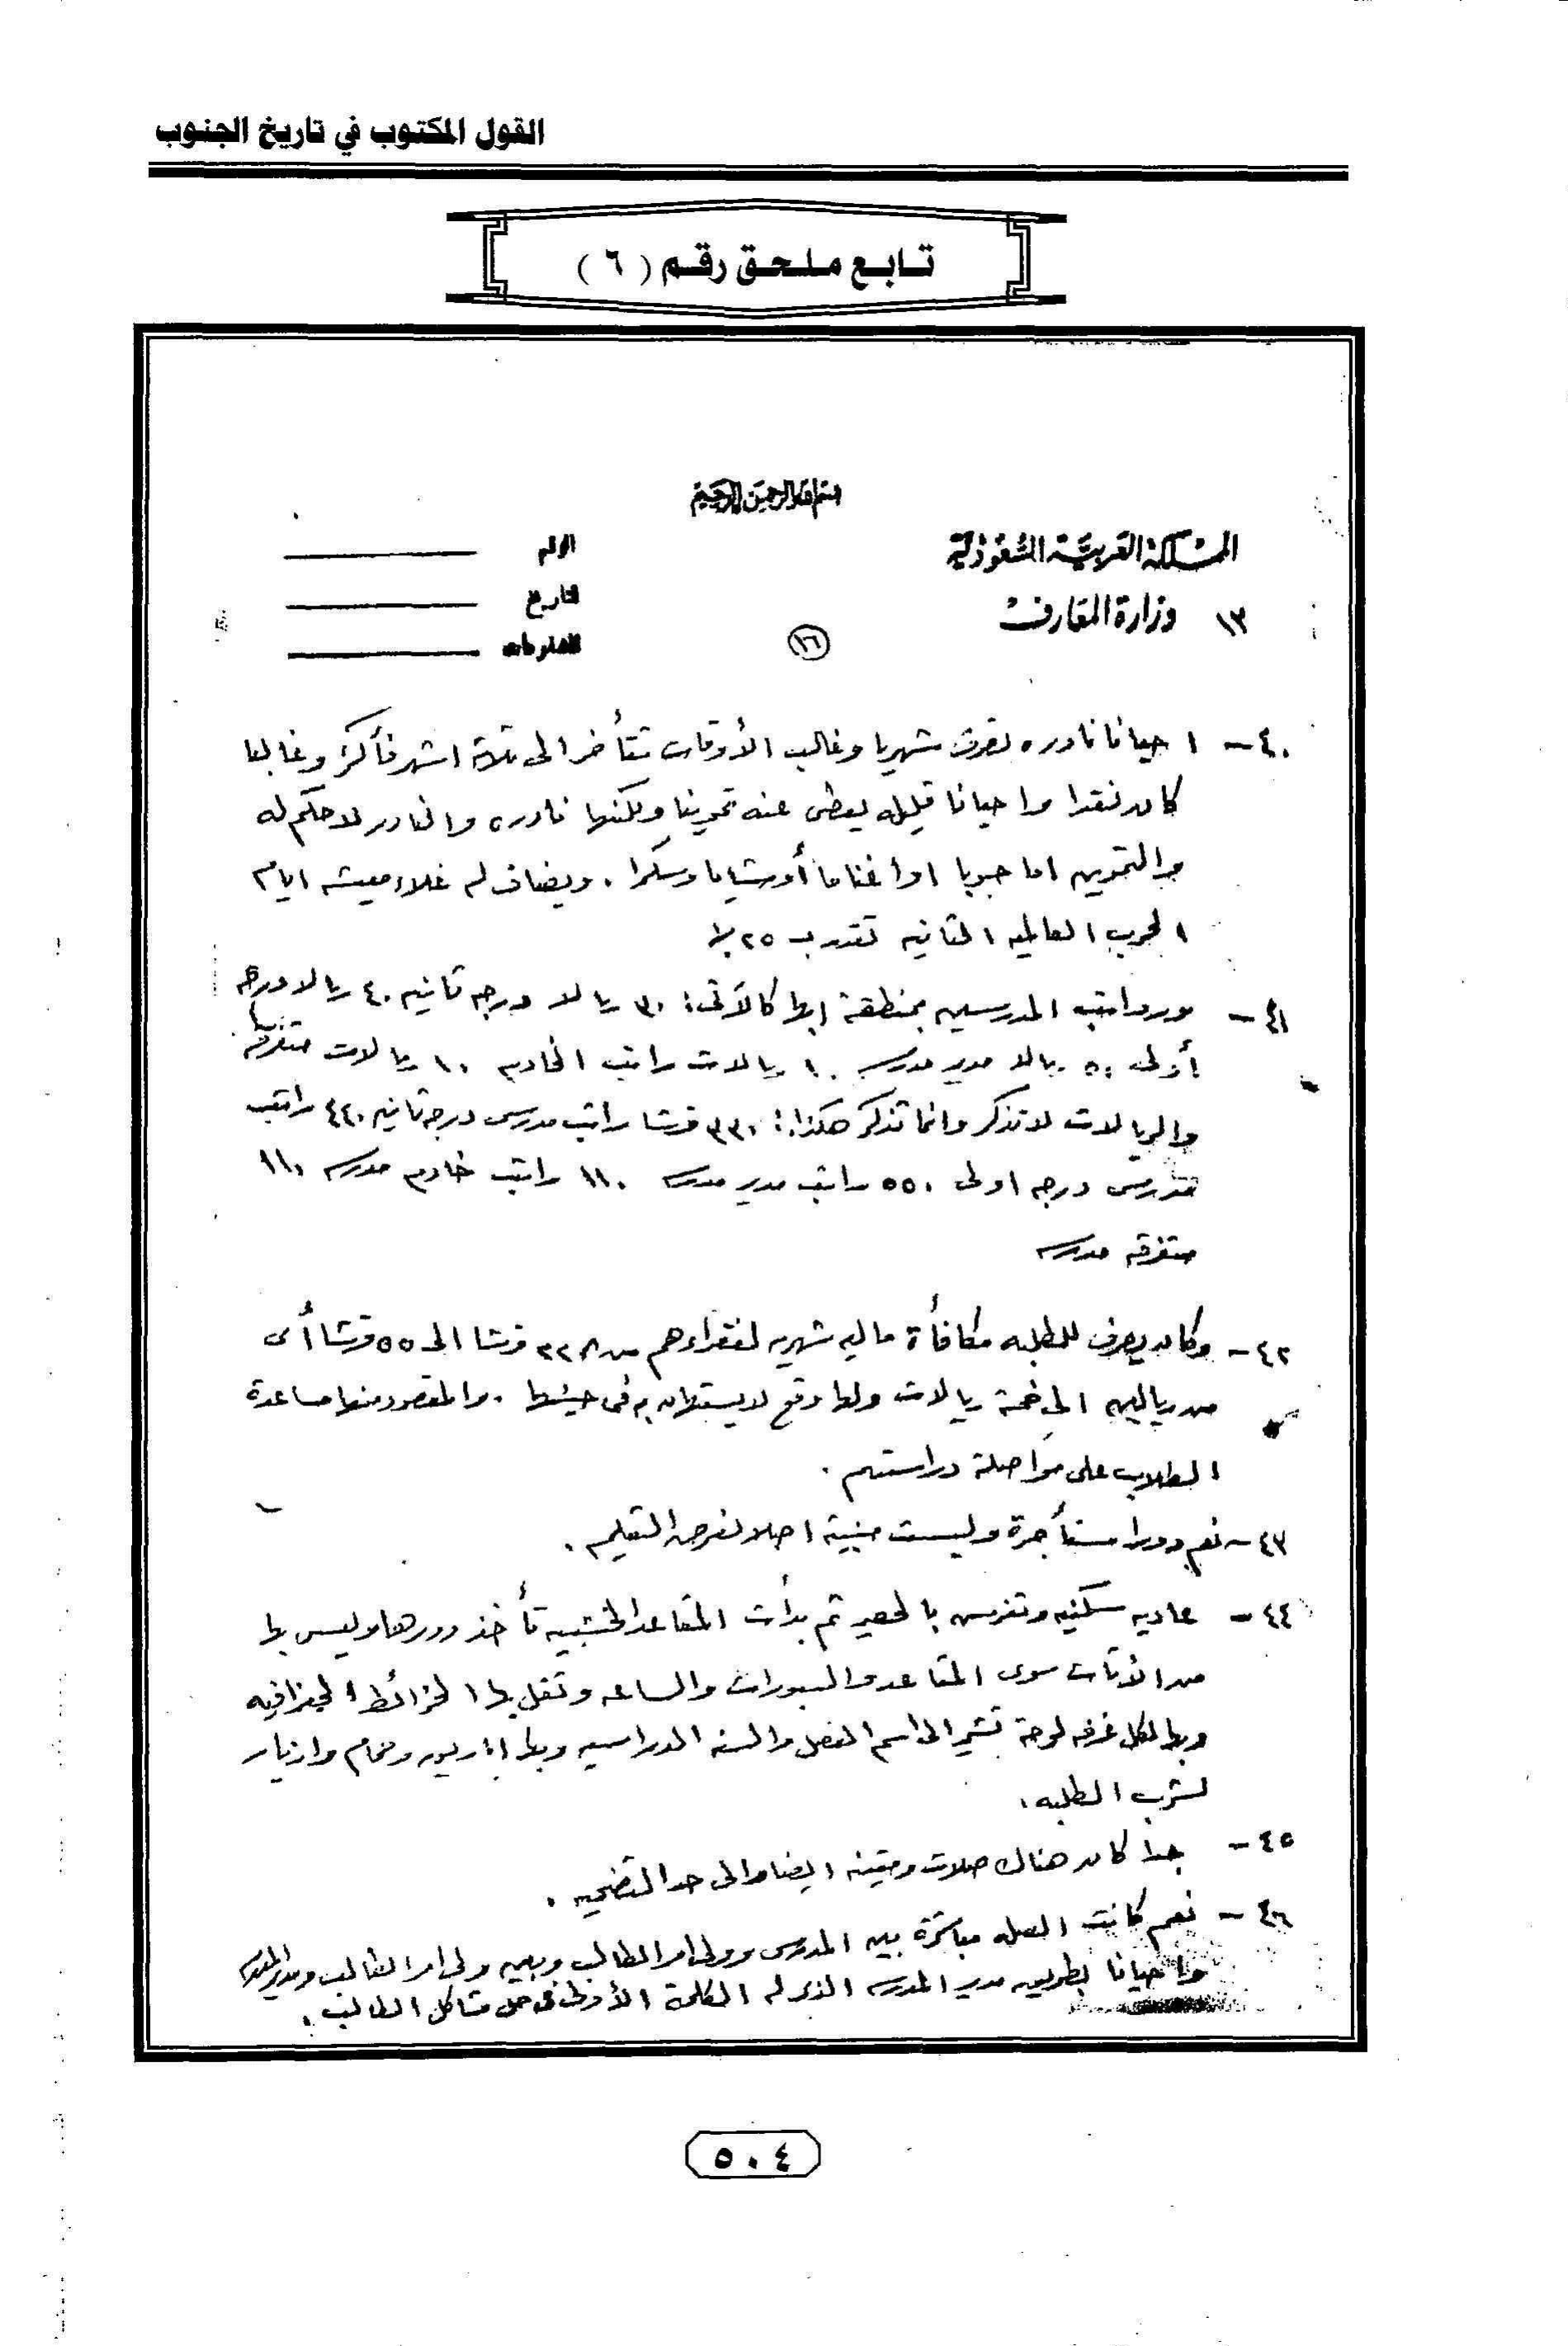 القول المكتوب في تاريخ الجنوب
تابع ملحق رقم (٦)
بسم الله الرحمن الرحيم
المملكة العربية السعودية
١٣ وزارة المعارف
الرقم
التاريخ
المشفوعات
١٦
٤٠- احيانا نادره تصرف شهريا وغالب الأوقات تتأخر الى ثلاثة اشهر فأكثر وغالبا
كان نقدا واحيانا قليله يعطى عنه تموينا ولكنها نادره والنادر لا حكم له
والتموين اما حبوبا او اغناما أو شايا وسكرا . ويضاف لم غلاء معيشه ايام
الحرب العالميه الثانيه تقدر بـ ٢٥٪
٤١- ورواتب المدرسين بمنطقة ابها كالآتى : ٣٠ ريالا درجه ثانيه ٤٠ ريالا درجه
أولى ٥٠ ريالا مدير مدرسه ١٠ ريالات راتب الخادم ١٠ ريالات متفرقه
والريالات لا تذكر وانما تذكر هكذا : ٣٣٠ قرشا راتب مدرس درجه ثانيه ٤٤٠ راتب
مدرس درجه اولى ٥٥٠ راتب مدير مدرسه ١١٠ راتب خادم مدرسه ١١٠
متفرقه مدرسه
٤٢- وكان يصرف للطلبه مكافأة ماليه شهريه لفقراءهم من ٢٢ قرشا الى ٥٥ قرشا أى
من ريالين الى خمسة ريالات ولها وقع لا يستهان به فى حينها . والمقصود منها مساعدة
الطلاب على مواصلة دراستهم .
٤٣- نعم دورا مستأجرة وليست مبنية اصلا لغرض التعليم .
٤٤- عاديه سكنيه وتفرش بالحصير ثم بدأت المقاعد الخشبيه تأخذ دورها وليس بها
من الأثاث سوى المقاعد والسبورات والساعه وتقل بها الخرائط الجغرافيه
وبها لكل غرفه لوحة تشير الى اسم الفصل والسنه الدراسيه وبها وحمام وازيار
لشرب الطلبه .
٤٥- جدا كان هناك صلات ومتينه ايضا والى حد التضحيه .
٤٦- نعم كانت الصله مباشرة بين المدرس وولى امر الطالب وبين ولى امر الطالب ومدير المدرسه
واحيانا بطريق مدير المدرسه الذى له الكلمة الأولى فى حل مشاكل الطالب .
٥٠٤